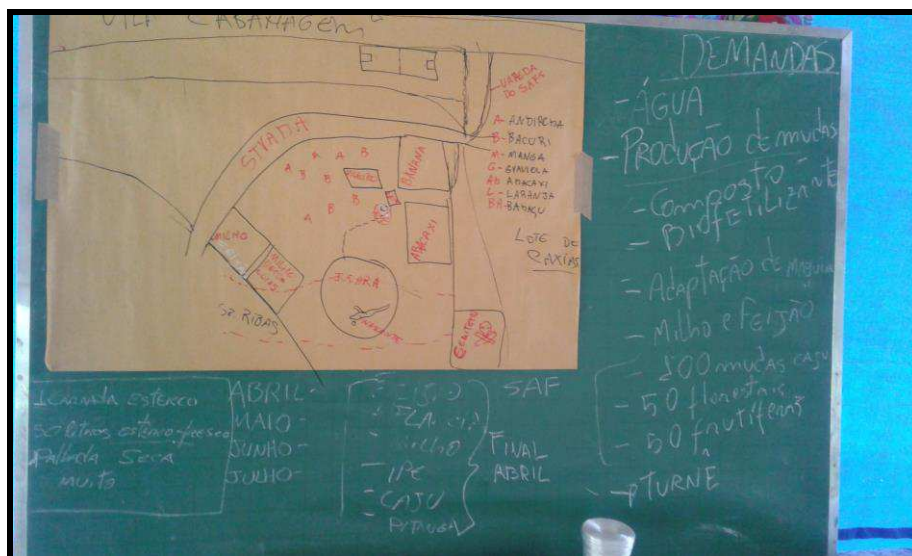 VILA CABANAGEM
VEREDA
DO SAFS
A- ANDIROBA
B- BACURI
M- MANGA
G- GRAVIOLA
AB ABACAXI
L- LARANJA
BA- BABAÇU
LOTE DE
CAXIAS
A A B
A B B
B
A B
BANANA
ABACAXI
MILHO
JUSSARA
SR. RIBAS
DEMANDAS
- ÁGUA
- PRODUÇÃO de mudas
- Composto -
- BIOFETILIZANTE
- Adaptação de
- Milho e FEIJÃO
- 200 mudas caju
- 50 florestais
- 50 frutíferas
TURNE
ESTERCO
50 litros esterco fresco
Palhada Seca
MUITO
ABRIL-
MAIO -
JUNHO-
JULHO-
MILHO
- IPÊ
- CAJU
PITANGA
SAF
FINAL
ABRIL